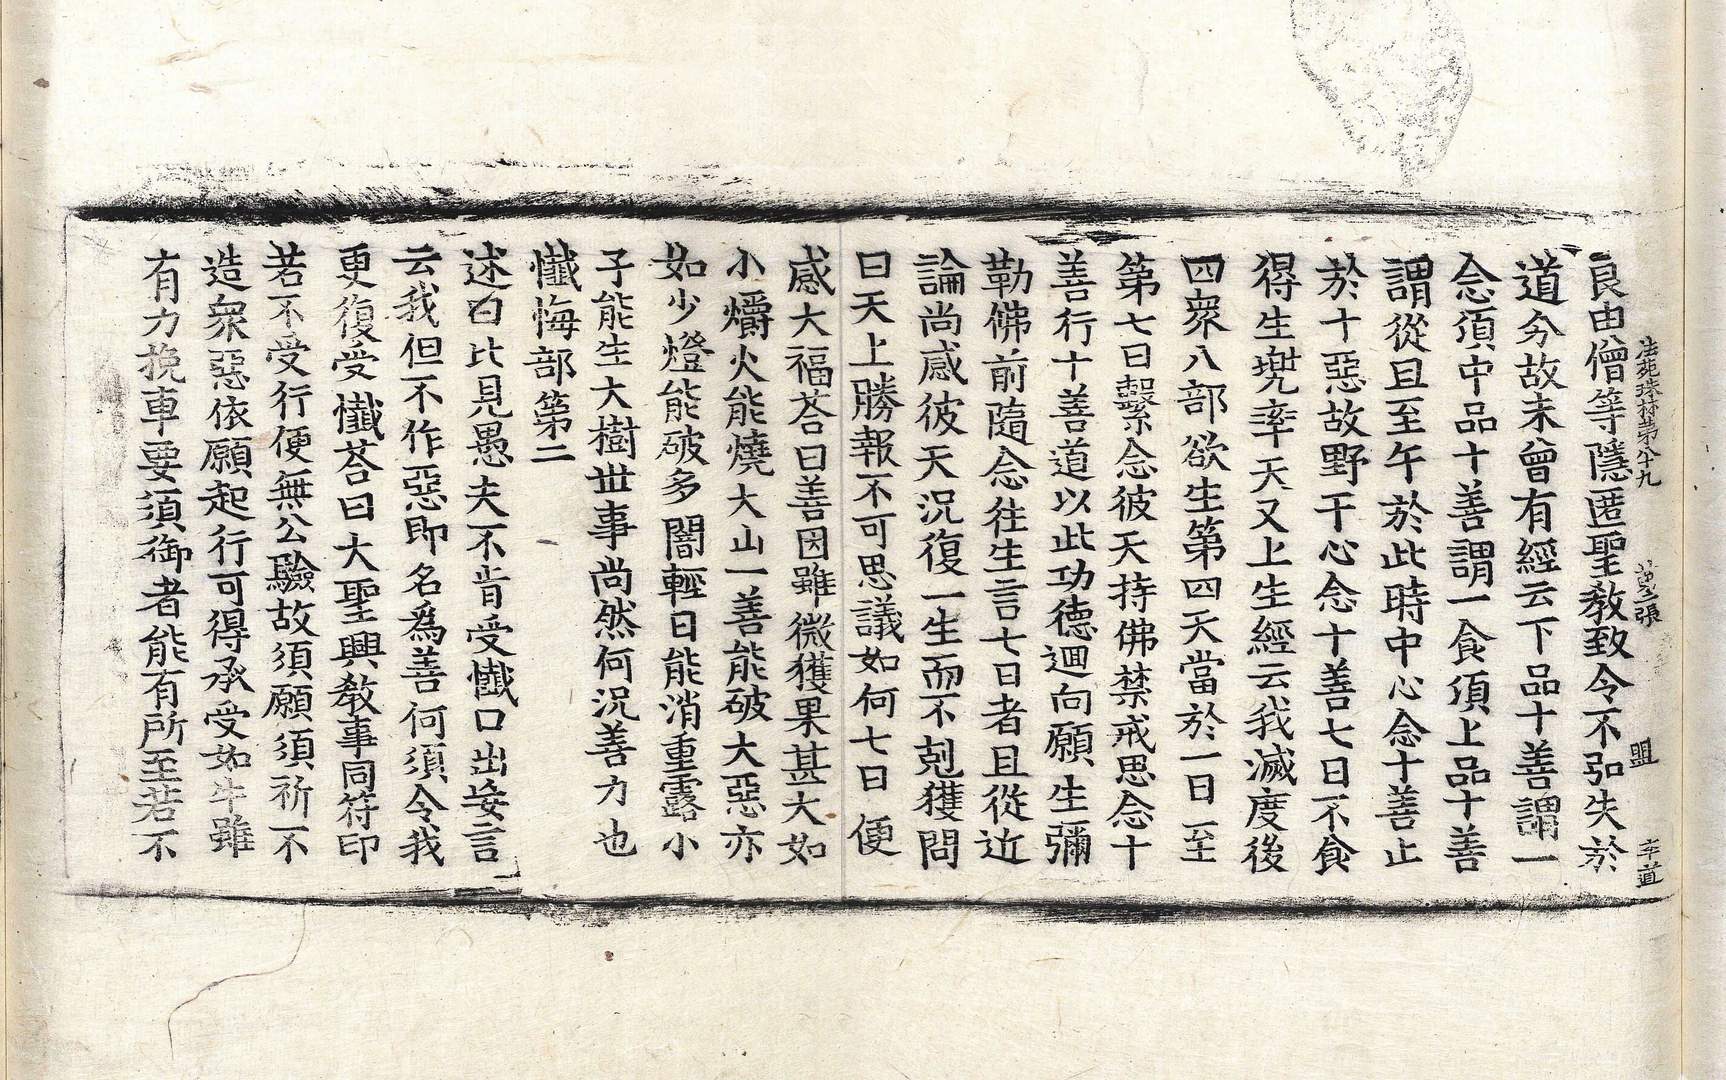 法苑珠林第八十九 張 盟 幸道
良由僧等隱匿聖教致令不弘失於
道分故未曾有經云下品十善謂一
念須中品十善謂一食須上品十善
謂從旦至午於此時中心念十善止
於十惡故野干心念十善七日不食
得生兜率天又上生經云我滅度後
四衆八部欲生第四天當於一日至
第七日繫念彼天持佛禁戒思念十
善行十善道以此功德迴向願生彌
勒佛前隨念往生言七日者且從近
論尚感彼天況復一生而不剋獲問
曰天上勝報不可思議如何七日便
感大福荅曰善因雖微獲果甚大如
小爝火能燒大山一善能破大惡亦
如少燈能破多闇輕日能消重露小
子能生大樹世事尚然何況善力也
懺悔部第二
述曰比見愚夫不肯受懺口出妄言
云我但不作惡即名爲善何須令我
更復受懺荅曰大聖興教事同符印
若不受行便無公驗故須願須祈不
造衆惡依願起行可得承受如牛雖
有力挽車要須御者能有所至若不